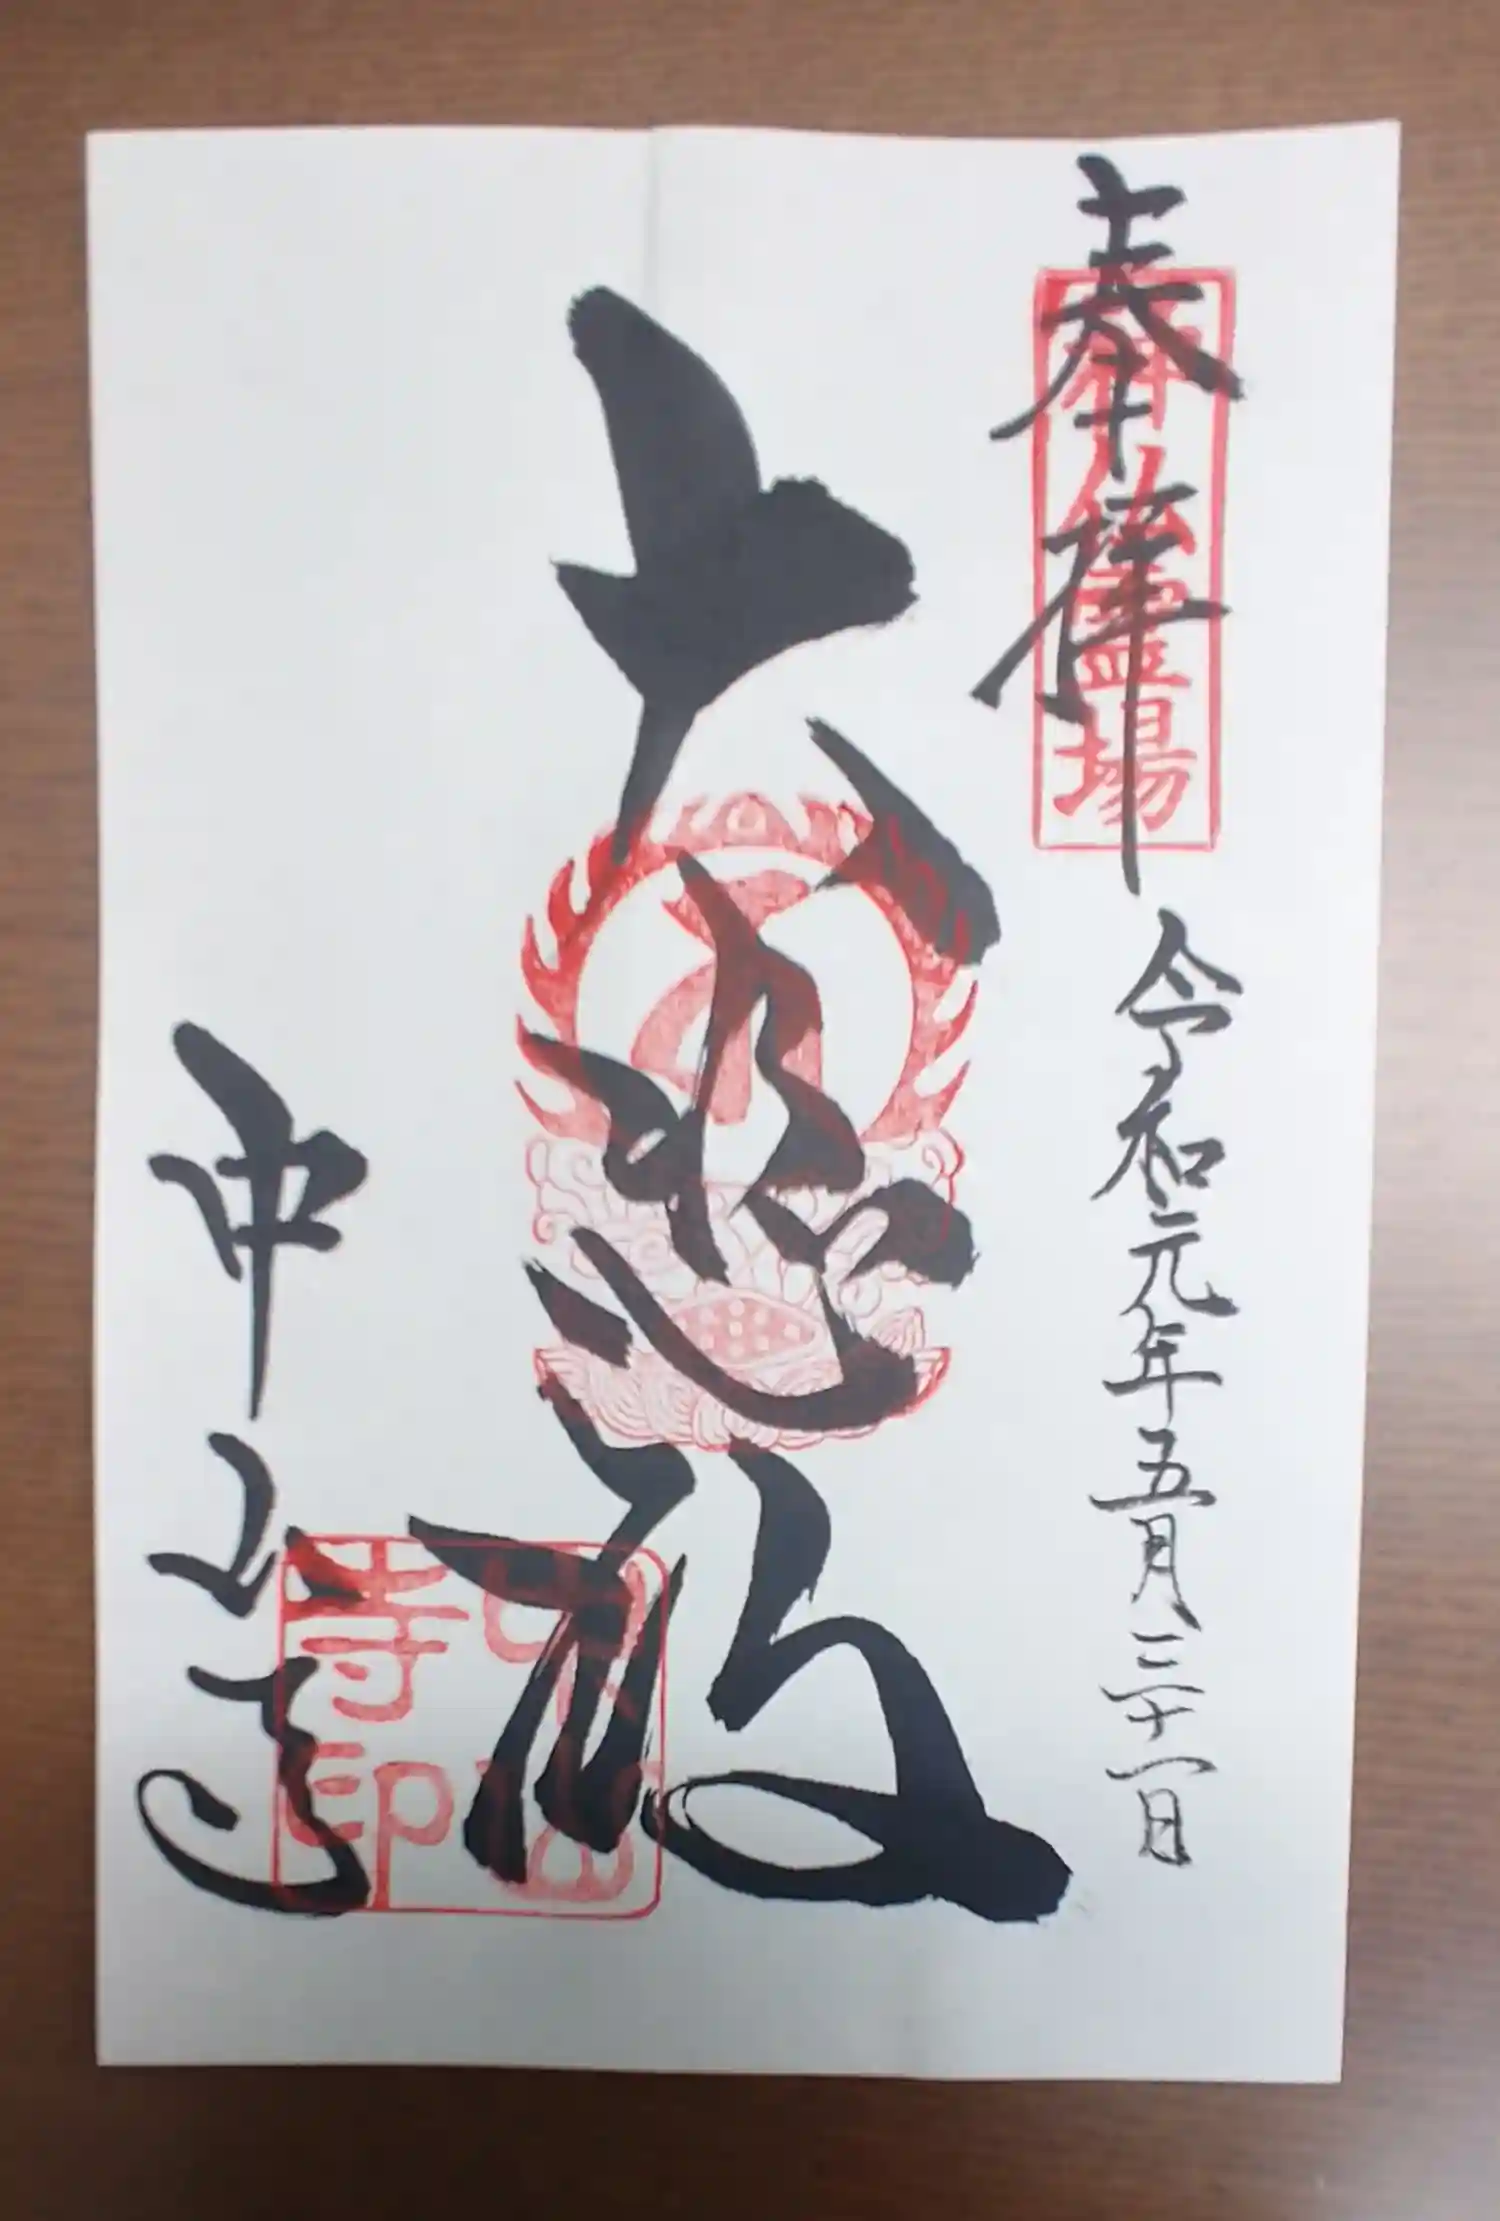 奉拝
神仏霊場
令和元年五月三十一日
大悲殿
中山寺
中山寺印